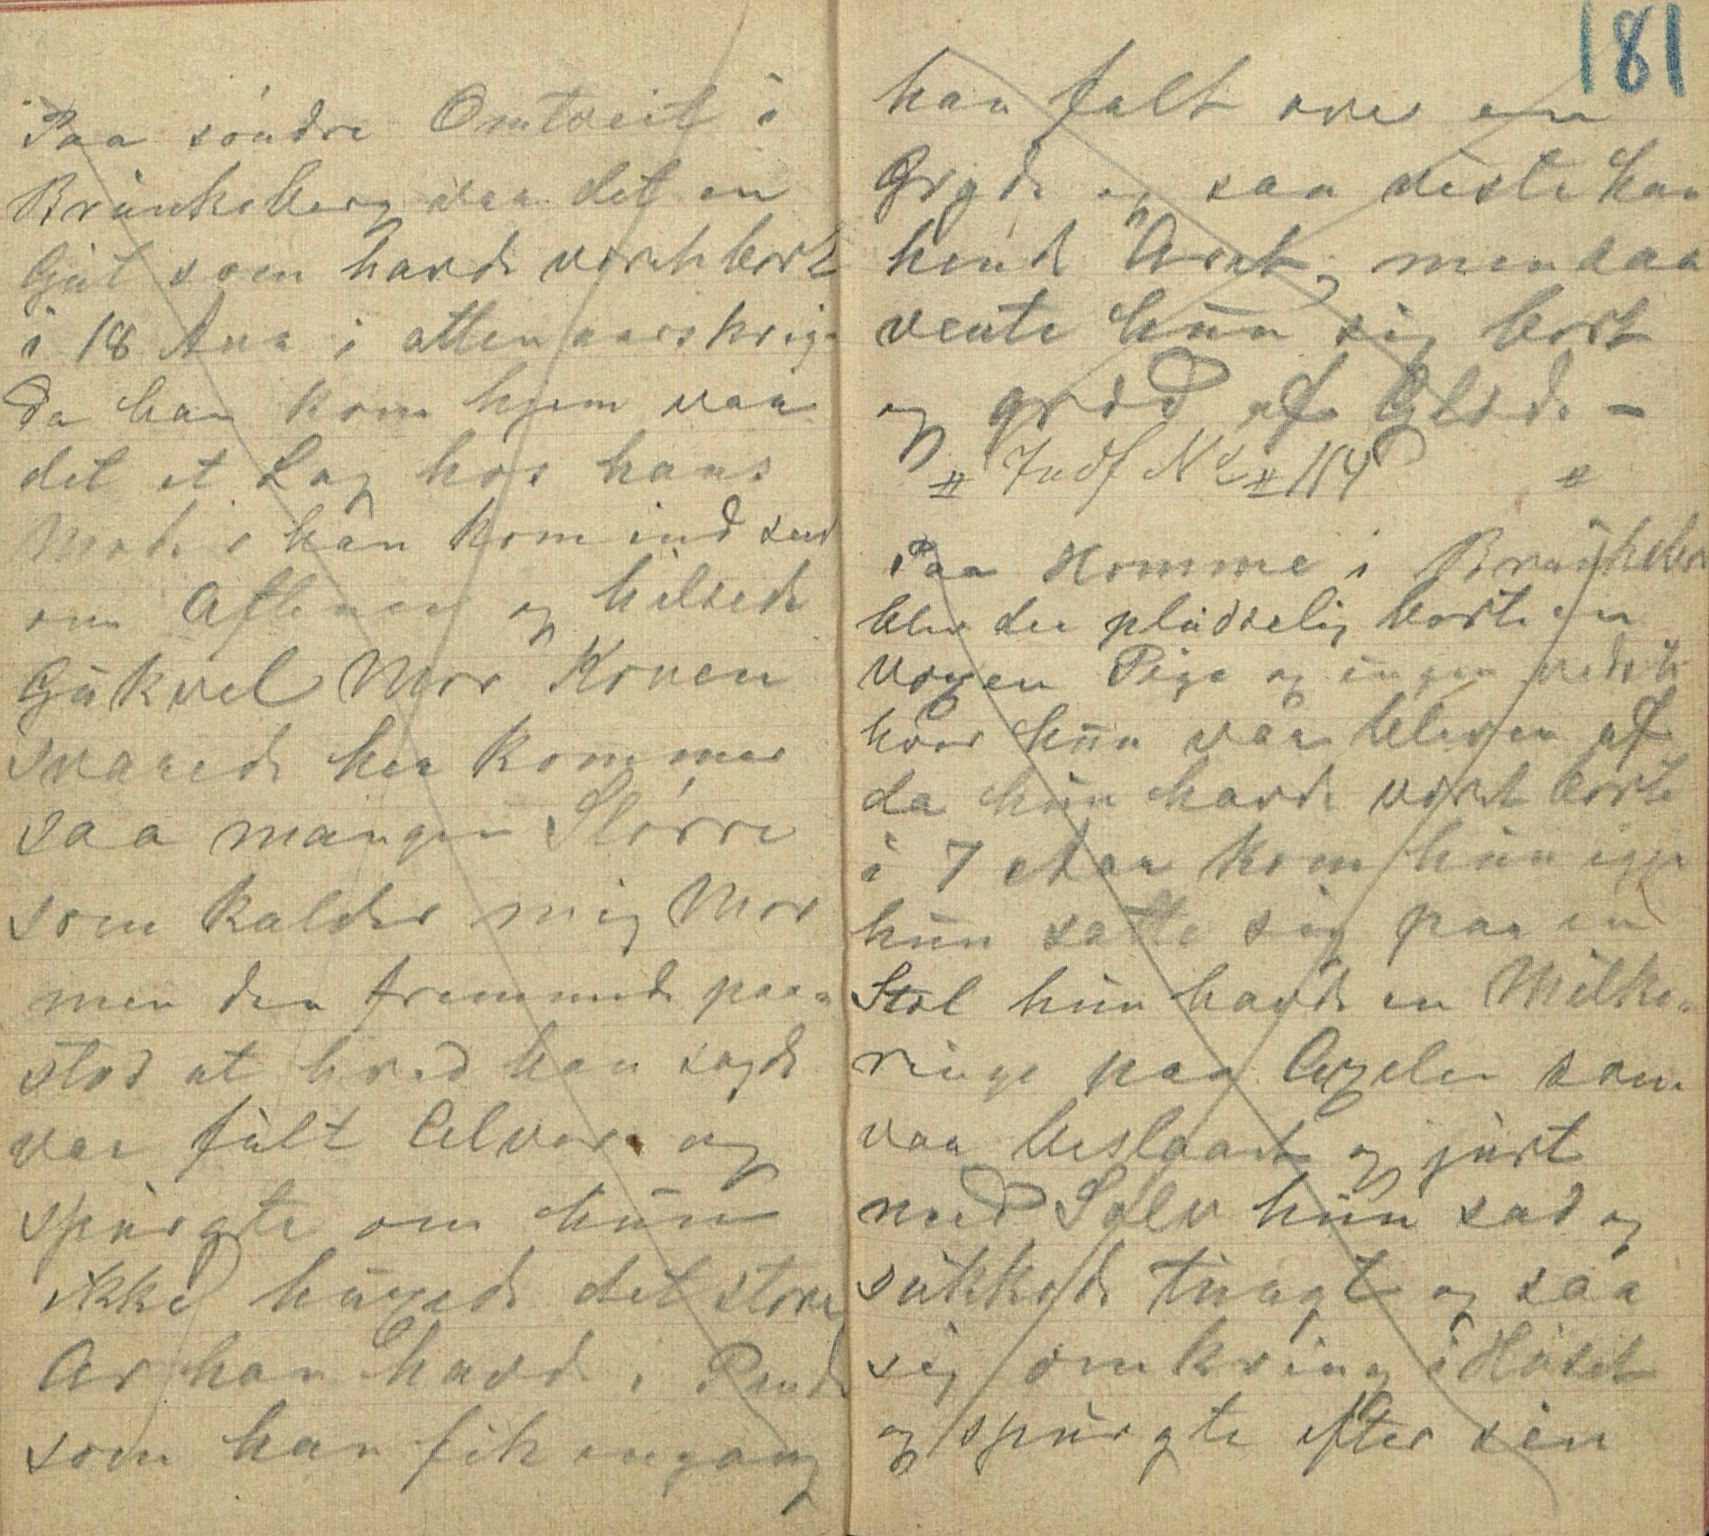 Paa söndre Omtveit i
Brunkeberg var det en
Gut som havde vært bort
i 18 Aar i attenaarskrige
da han kom hjem var
det et Lag hos hans
Moder han kom ind sent
om Aftenen og hilsede
Gukvel Mor Konen
svarede her kommer
saa mangen Slörve
som kalder mig Mor
men den fremmede paa
stod at hvad han sagde
var fult Alvor og
spurgte om hun
ikke husede det store
Ar han havde i Pande
som han fik engang
181
han falt over en
Gryde og saa viste han
hende Aret, men saa
vente hun sig bort
og gråd af Gläde -
# Indf No # 114
Paa Homme i Brunkeber
blev der pludselig borte en
voxen Pige og ingen vidste
hvor hun var bleven af
da hun havde vært borte
i 7 Aar kom hun igjen
hun satte sig paa en
Stol hun havde en Milke
ringe paa Axelen som
var beslaaet og gjört
med Sölv hun sad og
sukkede tungt og saa
sig omkring i Huset
og spurgte efter sin